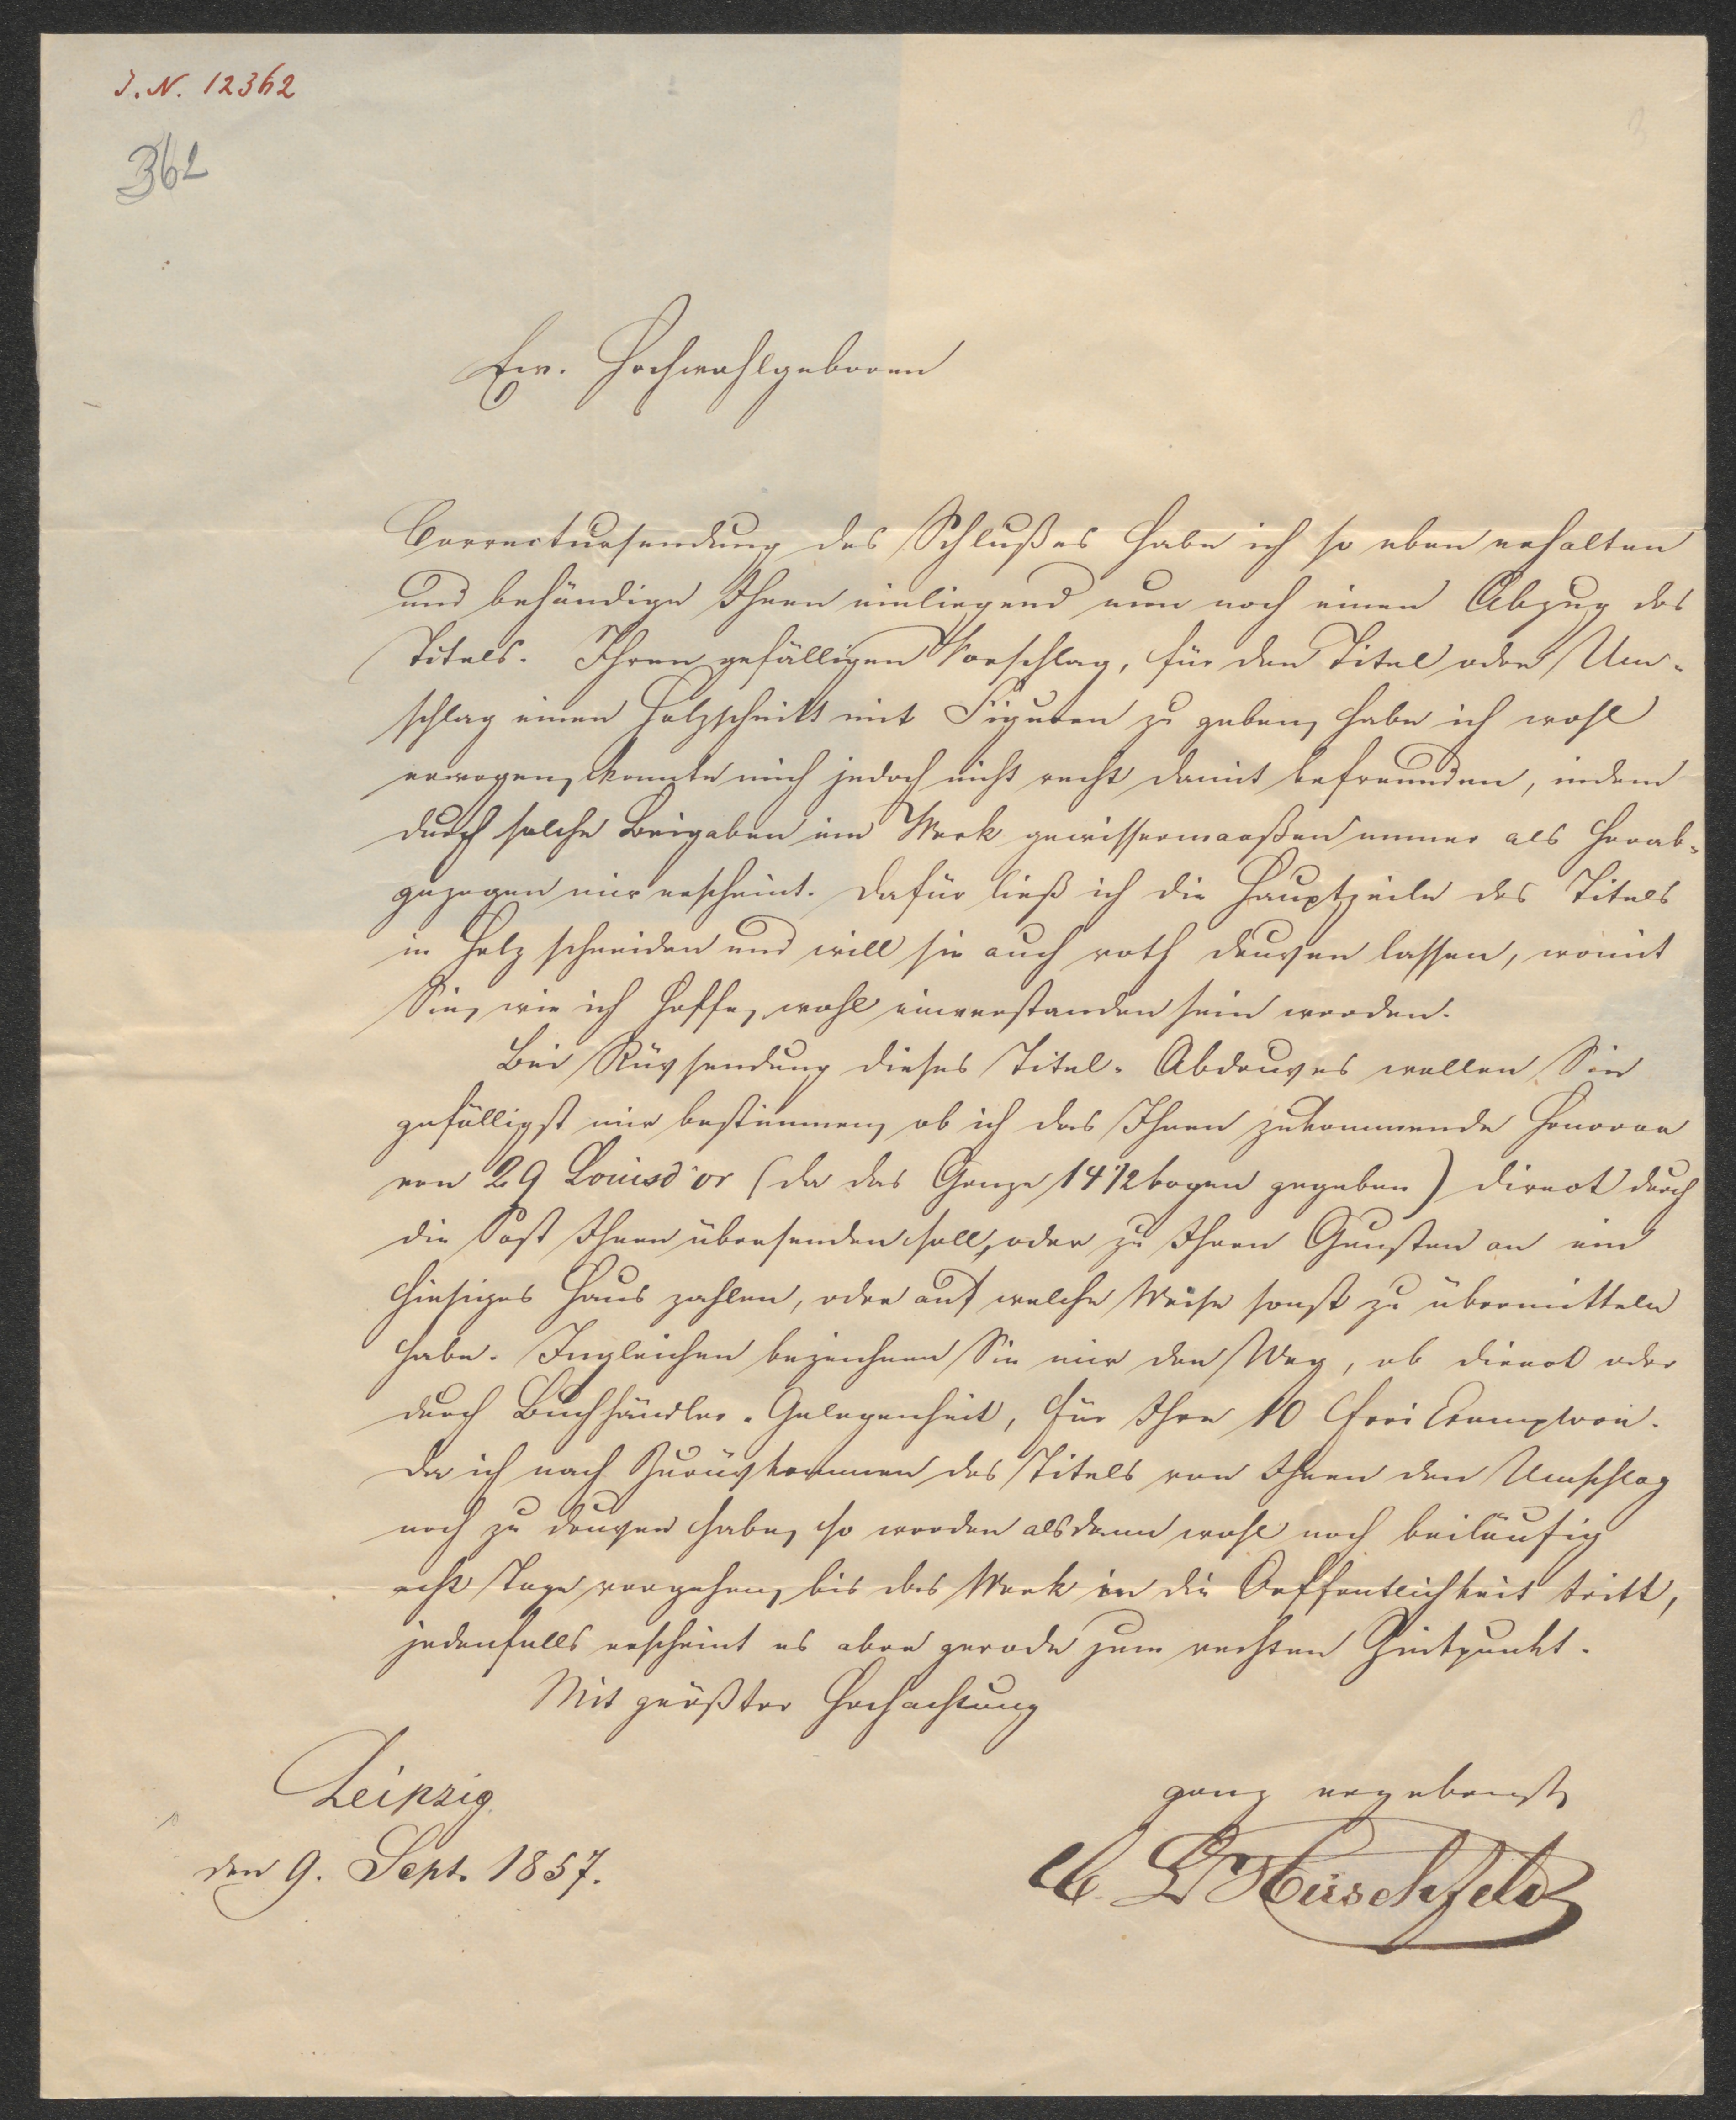 J. N. 12362
362
3
Ew. Hochwohlgeboren
Correctursendung des Schlußes habe ich so eben erhalten
und behändige Ihnen einliegend nun noch einen Abzug des
Titels. Ihren gefälligen Vorschlag, für den Titel oder Um-
schlag einen Holzschnitt mit Figuren zu geben, habe ich wohl
erwogen, konnte mich jedoch nicht recht damit befreunden, indem
durch solche Beigaben ein Werk gewissermaaßen immer als herab-
gezogen mir erscheint. Dafür ließ ich die Hauptzeile des Titels
in Holz schneiden und will sie auch roth drucken lassen, womit
Sie, wie ich hoffe, wohl einverstanden sein werden.
Bei Rücksendung dieses Titel-Abdruckes wollen Sie
gefälligst mir bestimmen, ob ich das Ihnen zukommende Honorar
von 29 Louisd'or (da das Ganze 14 1/2 bogen gegeben) direct durch
die Post Ihnen übersenden soll, oder zu Ihren Gunsten an ein
hiesiges Haus zahlen, oder auf welche Weise sonst zu übermitteln
habe. Ingleichen bezeichnen Sie mir den Weg, ob direct oder
durch Buchhändler-Gelegenheit, für Ihre 10 Frei Exemplare.
Da ich nach Zurückkommen des Titels von Ihnen den Umschlag
noch zu drucken habe, so werden alsdann wohl noch beiläufig
acht Tage vergehen, bis das Werk in die Oeffentlichkeit tritt,
jedenfalls erscheint es aber gerade zum rechten Zeitpunkt.
Mit größter Hochachtung
Leipzig
den 9. Sept. 1857.
ganz ergebenst
C. L. Hirschfeld